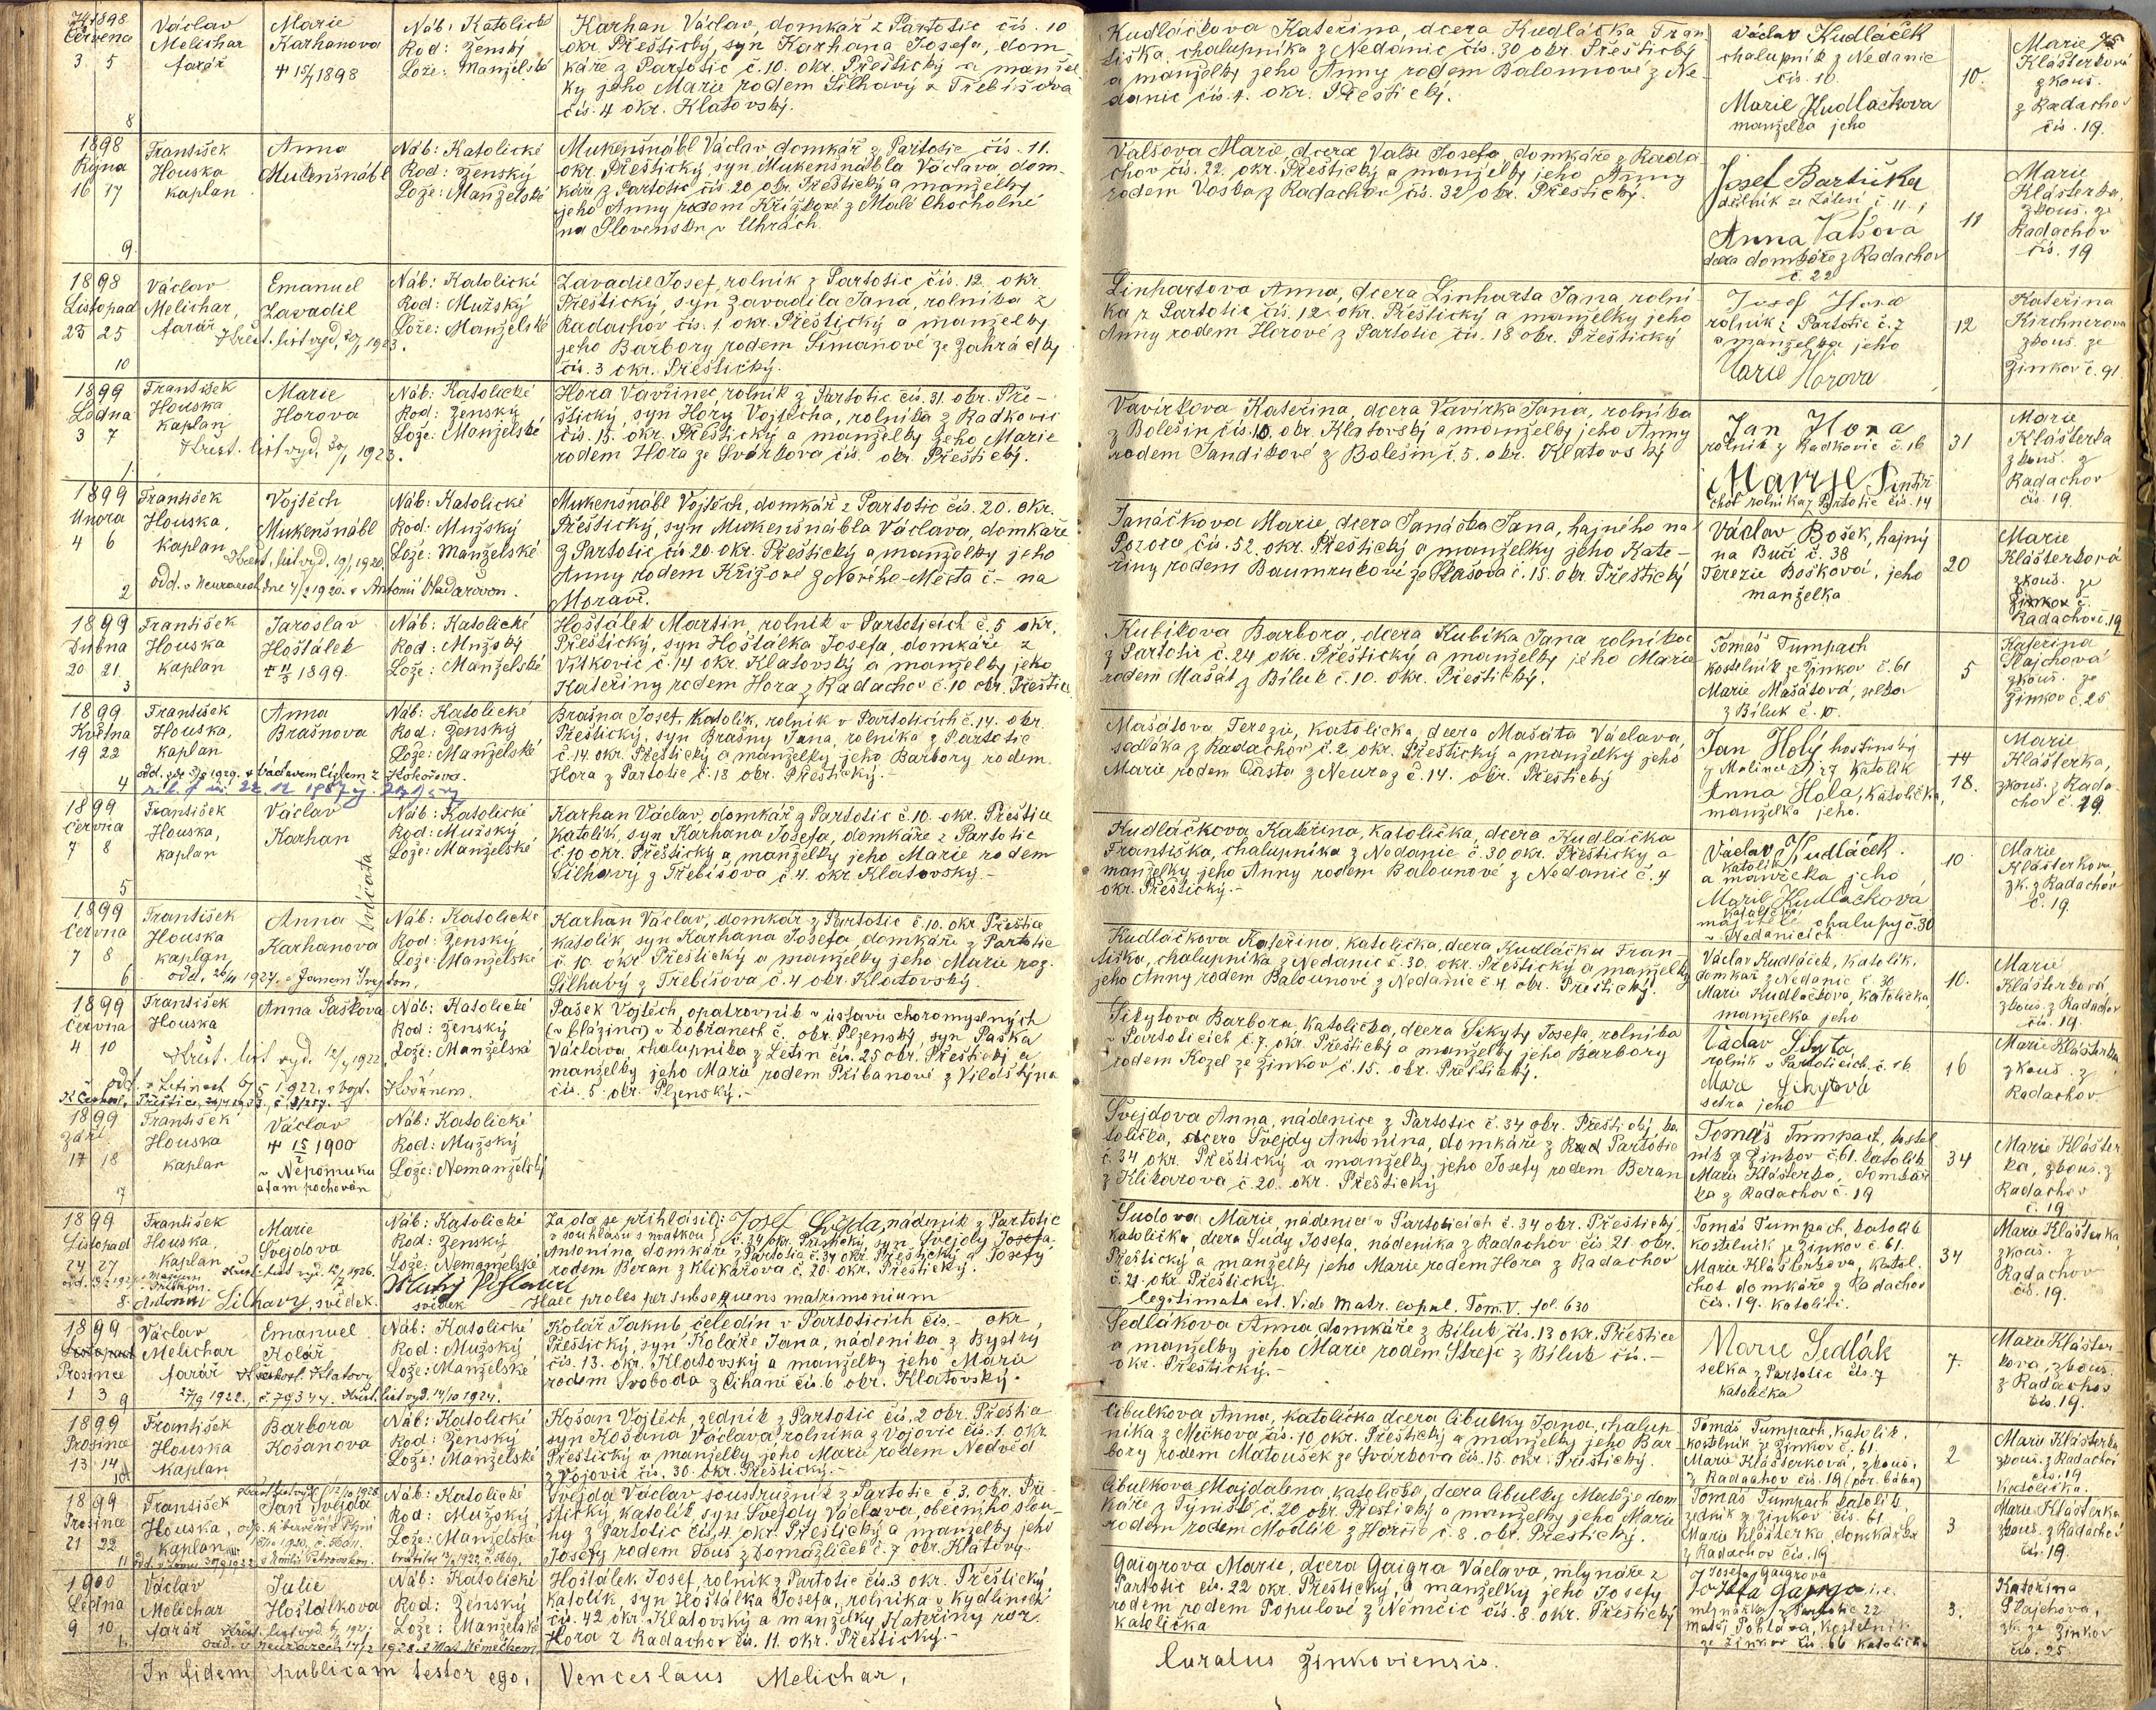 1898
Června
3. 5
8
Václav
Melichar
farář
Marie
Karhanova
1898
Náb: Katolické
Rod: Ženský
Lože: Manželské
Karhan Václav, domkář z Partotic čís. 10
okr. Přeštický, syn Karhana Josefa, dom-
káře z Partotic č. 10. okr. Přeštický a manžel
ky jeho Marie rodem Silhavý z Třebišova
čís. 4 okr. Klatovský.
Kudláčkova Kateřina, dcera Kudláčka Fran
tiška, chalupníka z Nedanic čís. 30 okr. Přeštický
a manželky jeho Anny rodem Balounové z Ne
danic čís. 4. okr. Přeštický.
Václav Kudláček
chalupník z Nedanic
čís. 10.
Marie Kudlačkova
manželka jeho
10.
Marie
Klášterková
zkouš.
z Radachov
čís. 19.
1898
Října
16 17
9.
František
Houska
kaplan
Anna
Mukenšnábl
Náb: Katolické
Rod: Ženský
Lože: Manželské
Mukenšnábl Václav domkář z Partotic čís. 11.
okr. Přeštický, syn Mukenšnábla Václava, dom-
káře z Partotic čís. 20 okr. Přeštický a manželky
jeho Anny rodem Křížkové z Malé Chocholné
na Slovensku v Uhrách.
Valšova Marie, dcera Valše Josefa domkáře z Rada
chov čís. 22. okr. Přeštický a manželky jeho Anny
rodem Voska z Radachov čís. 32 okr. Přeštický.
Josef Bartička
dělník ze Zálesí č. 11
Anna Valšova
dcera domkáře z Radachov
č. 22
11
Marie
Klášterka,
zkouš. ze
Radachov
čís. 19
1898
Listopad
23 25
10
Václav
Melichar,
farář
Emanuel
Zavadil
Křest. list vyd. 20/1 1923.
Náb: Katolické
Rod: Mužský
Lože: Manželské
Zavadil Josef, rolník z Partotic čís. 12. okr.
Přeštický, syn Zavadila Jana, rolníka z
Radachov čís. 1 okr. Přeštický a manželky
jeho Barbory rodem Šimanové ze Zahrádky
čís. 3 okr. Přeštický.
Linhartova Anna, dcera Linharta Jana, rolní
ka z Partotic čís. 12 okr. Přeštický a manželky jeho
Anny rodem Horové z Partotic čís. 18 okr. Přeštický
Josef Hora
rolník z Partotic č. 7
a manželka jeho
Marie Horova
12
Kateřina
Kirchnerova
zkouš. ze
Žinkov č. 91
1899
Ledna
3 7
1.
František
Houska
kaplan
Marie
Horova
Křest. list vyd. 30/1 1923.
Náb: Katolické
Rod: Ženský
Lože: Manželské
Hora Vavřinec, rolník z Partotic čís. 31. okr. Pře-
štický, syn Hory Vojtěcha, rolníka z Radkovic
čís. 15. okr. Přeštický a manželky jeho Marie
rodem Hora ze Svárkova čís. okr. Přeštický.
Vavírkova Kateřina, dcera Vavírka Jana, rolníka
z Bolešin čís. 10. okr. Klatovský a manželky jeho Anny
rodem Tandikové z Bolešin č. 5. okr. Klatovský
Jan Hora
rolník z Radkovic č. 16
Marye Pintíř
choť rolníka z Partotic čís. 14
31
Marie
Klášterka
zkouš. z
Radachov
čís. 19
1899
Února
4 6
2
František
Houska,
Kaplan
Vojtěch
Mukenšnábl
Křest. list vyd. 19/1 1920.
odd. v Neurazech dne 7/2 1920. s Antonií Wadarovou.
Náb: Katolické
Rod: Mužský
Lože: Manželské
Mukenšnábl Vojtěch, domkář z Partotic čís. 20. okr.
Přeštický, syn Mukenšnábla Václava, domkáře
z Partotic, čís 20. okr. Přeštický a manželky jeho
Anny rodem Křížové z Nového-Města č.- na
Moravě.
Janáčkova Marie, dcera Janáčka Jana, hajného na
Pozoru čís. 52. okr. Přeštický a manželky jeho Kate-
řiny rodem Baumrukové ze Strašova č. 15. okr. Přeštický
Václav Bošek, hajný
na Buči č. 38
Terezie Bošková, jeho
manželka
20
Marie
Klášterková
zkouš. ze
Žinkov č.
Radachov č. 19
1899
Dubna
20 21
3
František
Houska
kaplan
Jaroslav
Hošťálek
1899.
Náb: Katolické
Rod: Mužský
Lože: Manželské
Hošťálek Martin, rolník v Partoticích č. 5 okr.
Přeštický, syn Hošťálka Josefa, domkáře z
Vítkovic č. 14 okr. Klatovský a manželky jeho
Kateřiny rodem Hora z Radachov č. 10 okr. Přeštic
Kubíkova Barbora, dcera Kubíka Jana rolníka
z Partotic č. 24 okr. Přeštický a manželky jeho Marie
rodem Mašát z Biluk č. 10. okr. Přeštický.
Tomáš Tumpach
kostelník ze Žinkov č. 61
Marie Mašátová,
z Biluk č. 10.
5
Kateřina
Plajchová
zkouš. ze
Žinkov č. 25
1899
Května
19 22
4
František
Houska,
kaplan
Anna
Brašnova
Náb: Katolické
Rod: Ženský
Lože: Manželské
Brašna Josef, Katolík, rolník v Partoticích č. 14. okr.
Přeštický, syn Brašny Jana, rolníka z Partotic
č. 14. okr. Přeštický a manželky jeho Barbory rodem
Hora z Partotic č. 18 okr. Přeštický.-
Mašátova Terezie, Katolička, dcera Mašáta Václava
sedláka z Radachov č. 2 okr. Přeštický a manželky jeho
Marie rodem Částa z Neuraz č. 14. okr. Přeštický
Jan Holý hostinský
z Malinec č. 27 Katolík
Anna Hola, Katolička,
manželka jeho.
14
18.
Marie
Klášterka,
zkouš. z Rada-
chov č. 19.
1899
Června
7 8
5
František
Houska,
kaplan
Václav
Karhan
dvojčata
Náb: Katolické
Rod: Mužský
Lože: Manželské
Karhan Václav, domkář z Partotic č. 10. okr. Přeštice
Katolík, syn Karhana Josefa, domkáře z Partotic
č. 10 okr. Přeštický a manželky jeho Marie rodem
Silhavý z Třebišova č. 4. okr. Klatovský.-
Kudláčkova Kateřina, katolička, dcera Kudláčka
Františka, chalupníka z Nedanic č. 30 okr. Přeštický a
manželky jeho Anny rodem Balounové z Nedanic č. 4
okr. Přeštický.-
Václav Kudláček.
katolík
a manželka jeho
Marie Kudlačková
katolička
majitelé chalupy č. 30
v Nedanicích
10
Marie
Klášterková
zk. z Radachov
č. 19.
1899
Června
7 8
6
František
Houska
kaplan
Anna
Karhanova
odd. 26/11 1927. s Janem
Náb: Katolické
Rod: Ženský
Lože: Manželské
Karhan Václav, domkář z Partotic č. 10. okr. Přeštic
katolík, syn Karhana Josefa, domkáře z Partotic
č. 10 okr. Přeštický a manželky jeho Marie roz.
Silhavý z Třebišova č. 4 okr. Klatovský.
Kudláčkova Kateřina, katolička, dcera Kudláčka Fran-
tiška, chalupníka z Nedanic č. 30. okr. Přeštický a manželky
jeho Anny rodem Balounové z Nedanic č. 4 okr. Přeštický.
Václav Kudláček, Katolík.
domkář z Nedanic č. 30
Marie Kudlačkova, katolička,
manželka jeho
10.
Marie
Klášterková
zkouš. z Radachov
čís. 19.
1899
Června
4 10
František
Houska
Anna Pašková
Křest. list vyd. 12/4 1922.
odd. v Letinech 6/5 1922. s Vojt.
Náb: Katolické
Rod: Ženský
Lože: Manželské
Pašek Vojtěch, opatrovník v ústavu choromyslných
(v blázinci) v Dobřanech č. okr. Plzeňský, syn Paška
Václava, chalupníka z Letin čís. 25 okr. Přeštický a
manželky jeho Marie rodem Přibanové z Vilostýna
čís. 5 okr. Plzenský.-
Sikytova Barbora, katolička, dcera Sikyty Josefa, rolníka
v Partoticích č. 7. okr. Přeštický a manželky jeho Barbory
rodem Kozel ze Žinkov č. 15. okr. Přeštický.
Václav Sikyta
rolník v Partoticích č. 16
Marie Sikytová
sestra jeho
16
Marie Klášterka,
zkouš. z
Radachov
1899
Září
17 18
7
František
Houska
kaplan
Václav
1900
v Nepomuku
a tam pochován
Náb: Katolické
Rod: Mužský
Lože: Nemanželský
Švejdova Anna, nádenice z Partotic č. 34 okr. Přeštický ka
tolička, dcera Švejdy Antonína, domkáře z Partotic
č. 34 okr. Přeštický a manželky jeho Josefy rodem Beran
z Klikařova č. 20. okr. Přeštický
Tomáš Tumpach, kostel
ník ze Žinkov č. 61. katolík
Marie Klášterka, domkář
ka z Radachov č. 19
34
Marie Klášter
ka, zkouš. z
Radachov
č. 19
1899
Listopad
24 27
8.
František
Houska,
Kaplan
Marie
Švejdova
Křest. list vyd. 1926.
Antonín Silhavý, svědek.
svědek
Náb: Katolické
Rod: Ženský
Lože: Nemanželské
Za otce se přihlásil: Josef Suda, nádeník z Partotic
v souhlasu s matkou
Antonína, domkáře z Partotic č. 34 okr. Přeštický a Josefy
rodem Beran z Klikařova č. 20. okr. Přeštický.
Haec proles per subsequens matrimonium
Sudova Marie, nádenice v Partoticích č. 34 okr. Přeštický,
katolička, dcera Sudy Josefa, nádeníka z Radachov čís 21. okr.
Přeštický a manželky jeho Marie rodem Hora z Radachov
č. 21. okr. Přeštický
legitimata est. Vide Matr. copul. Tom. V. fol. 630
Tomáš Tumpach, katolík
kostelník ze Žinkov č. 61.
Marie Klášterkova, katol.
choť domkáře z Radachov
čís. 19. katolíci.
34
Marie Klášterka
zkouš. z
Radachov
čís. 19.
1899
Listopad
Prosince
1 3
9
Václav
Melichar
farář
Emanuel
Kolář
27/9 1922. č. 79344. Křest. list vyd. 14/10 1924.
Náb: Katolické
Rod: Mužský
Lože: Manželské
Kolář Jakub čeledín v Partoticích čís.- okr.
Přeštický, syn Koláře Jana, nádeníka z Bystrý
čís. 13. okr. Klatovský a manželky jeho Marie
rodem Svoboda z Čihaně čís. 6 okr. Klatovský.
Sedlákova Anna, domkáře z Biluk čís. 13 okr. Přeštice
a manželky jeho Marie rodem Strejc z Biluk čís.-
okr. Přeštický.-
Marie Sedlák
selka z Partotic čís. 7
katolička
7.
Marie Klášter-
kova, zkouš.
z Radachov
čís. 19.
1899
Prosince
13 14
10
František
Houska
Kaplan
Barbora
Košanova
Náb: Katolické
Rod: Ženský
Lože: Manželské
Košan Vojtěch, zedník z Partotic čís. 2 okr. Přeštic
syn Košana Václava rolníka z Vojovic čís. 1. okr.
Přeštický a manželky jeho Marie rodem Nedvěd
z Vojovic čís. 30. okr. Přeštický.-
Cibulkova Anna, katolička dcera Cibulky Jana, chalup
níka z Mečkova čís. 10. okr. Přeštický a manželky jeho Bar-
bory rodem Matoušek ze Svárkova čís. 15. okr. Přeštický.
Tomáš Tumpach, katolík,
kostelník ze Žinkov č. 61.
Marie Klášterková, zkouš.
z Radachov čís. 19 (por. bába)
2
Marie Klášterka,
zkouš. z Radachov
čís. 19
katolička.
1899
Prosince
21 22
11
František
Houska,
kaplan
Jan Švejda
Náb: Katolické
Rod: Mužský
Lože: Manželské
Švejda Václav soustružník z Partotic č. 3. okr. Pře-
štický, katolík, syn Švejdy Václava, obecního slou-
hy z Partotic čís. 4. okr. Přeštický a manželky jeho
Josefy rodem Tous z Domažliček č. 7 okr. Klatovy.
Cibulkova Majdalena, katolička, dcera Cibulky Matěje dom
káře z Týniště č. 20 okr. Přeštický a manželky jeho Marie
rodem rodem Močílik z Hořic č. 8. okr. Přeštický.
Tomáš Tumpach katolík,
zedník z Žinkov čís. 61
Marie Klášterka, domkářka
z Radachov čís. 19
3
Marie Klášterka
zkouš. z Radachov
čís. 19.
1900
Ledna
9 10
1.
Václav
Melichar
farář
Julie
Hošťálkova
Náb: Katolické
Rod: Ženský
Lože: Manželské
Hošťálek Josef, rolník z Partotic čís. 3 okr. Přeštický,
Katolík, syn Hošťálka Josefa, rolníka v Kydlinech
čís. 42 okr. Klatovský a manželky Kateřiny roz.
Hora z Radachov čís. 11. okr. Přeštický.-
Gaigrova Marie, dcera Gaigra Václava, mlynáře z
Partotic čís. 22 okr. Přeštický, a manželky jeho Josefy
rodem rodem Populové z Němčic čís. 8. okr. Přeštický
katolička
Josefa Gaigrova
mlynářka z Partotic 22
ze Žinkov čís. 66 katolička
3.
Kateřina
Plajchova,
zk. ze Žinkov
čís. 25
In fidem publicam testor ego, Venceslaus Melichar,
Curatus Žinkoviensis.